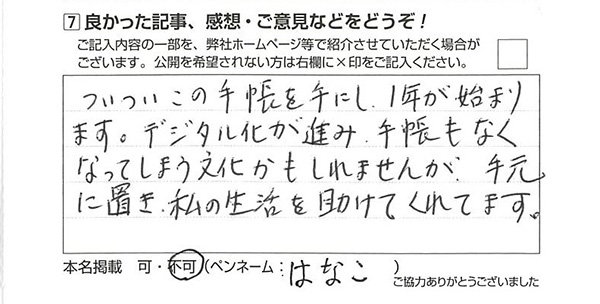 7 良かった記事、感想・ご意見などをどうぞ！
ご記入内容の一部を、弊社ホームページ等で紹介させていただく場合が
ございます。公開を希望されない方は右欄に×印をご記入ください。
ついついこの手帳を手にし、1年が始まり
ます。デジタル化が進み、手帳もなく
なってしまう文化かもしれませんが、手元
に置き、私の生活を助けてくれてます。
本名掲載 可・不可（ペンネーム：はなこ ）
ご協力ありがとうございました